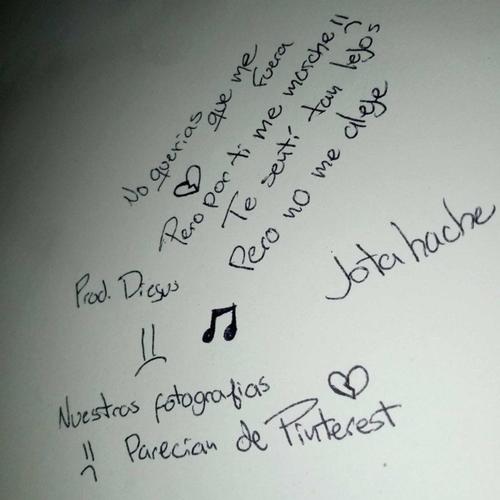 No querias que me
fuera
Pero por ti me marche
Te sentí tan lejos
Pero no me aleje
Jotahache
Prod. Diegus
Nuestras fotografias
Parecian de Pinterest